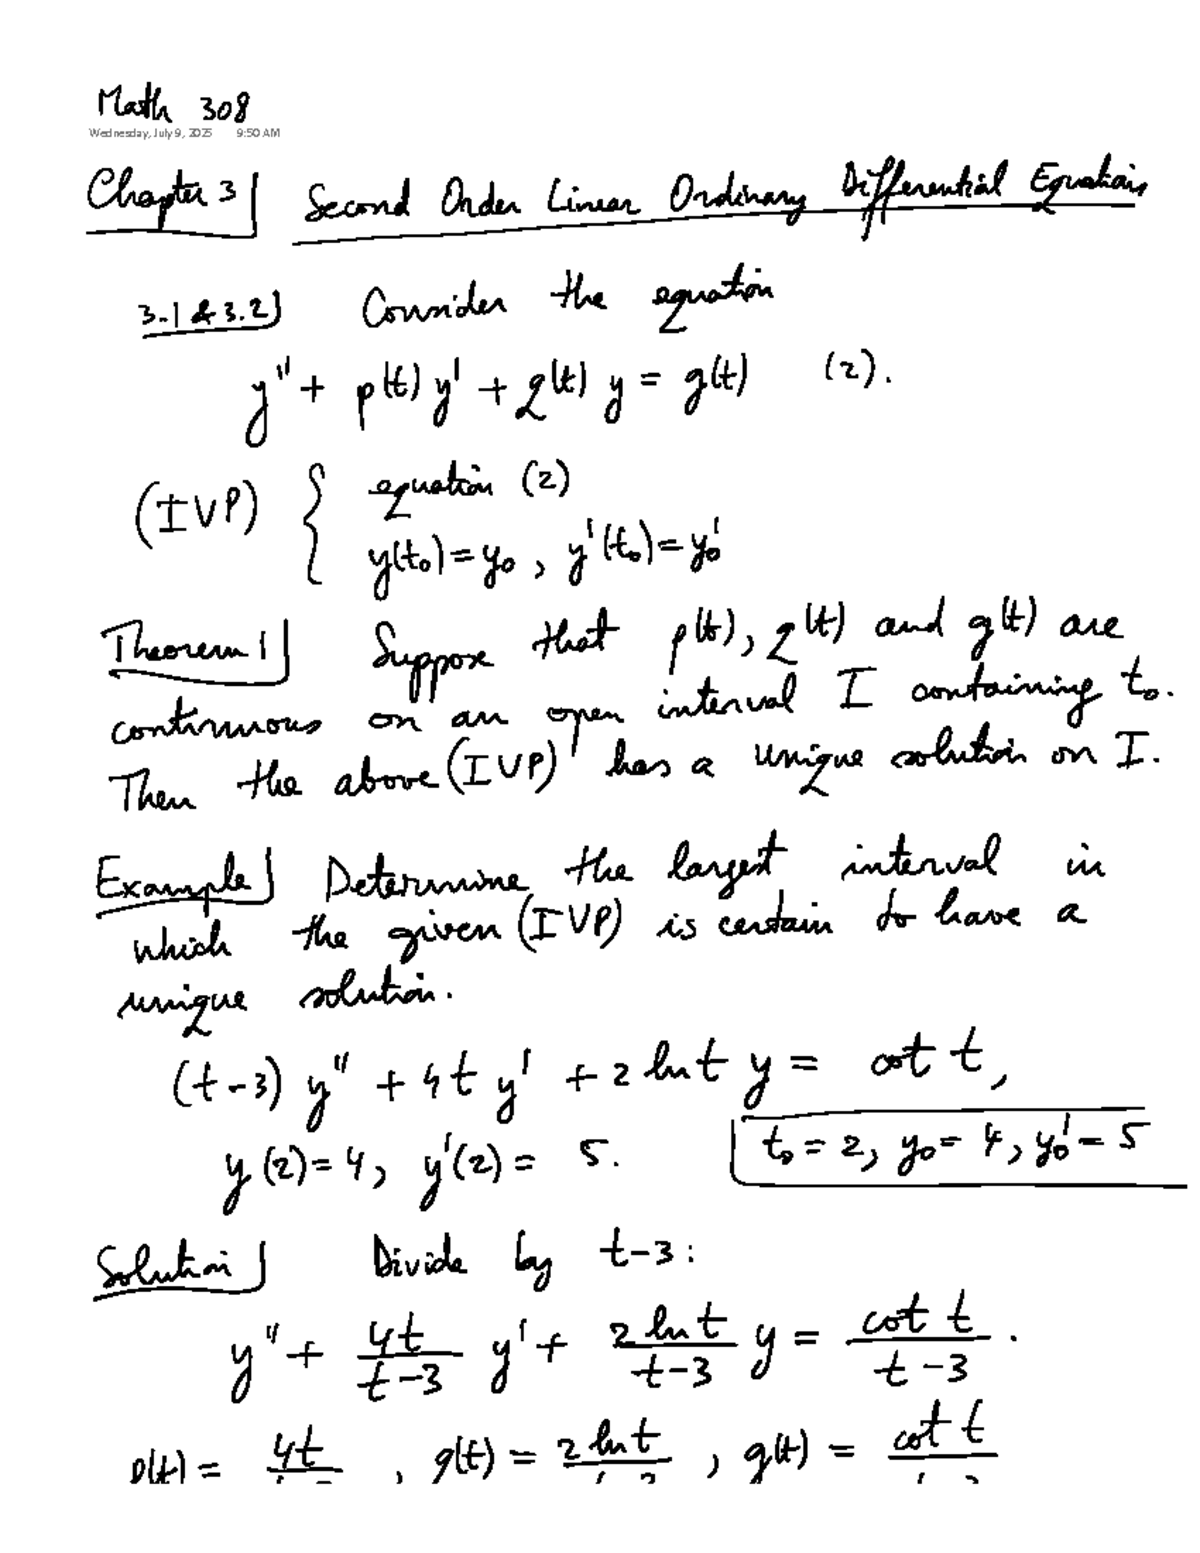 Math 308
Wednesday, July 9, 2025 9:50 AM
Chapter 3 Second Order Linear Ordinary Differential Equations
3.1 & 3.2) Consider the equation
y'' + p(t) y' + q(t) y = g(t) (2).
(IVP) { equation (2)
y(t₀) = y₀ , y'(t₀) = y₀'
Theorem 1 Suppose that p(t), q(t) and g(t) are
continuous on an open interval I containing t₀.
Then the above (IVP) has a unique solution on I.
Example Determine the largest interval in
which the given (IVP) is certain to have a
unique solution.
(t-3) y'' + 4t y' + 2 ln t y = cot t,
y(2) = 4, y'(2) = 5. t₀ = 2, y₀ = 4, y₀' = 5
Solution Divide by t-3:
y'' + 4t/(t-3) y' + 2 ln t/(t-3) y = cot t/(t-3) .
p(t) = 4t/(t-3) , q(t) = 2 ln t/(t-3) , g(t) = cot t/(t-3)